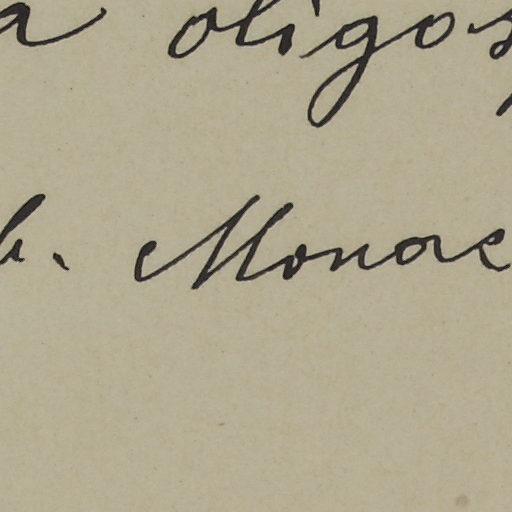 a oligos
b. Monac